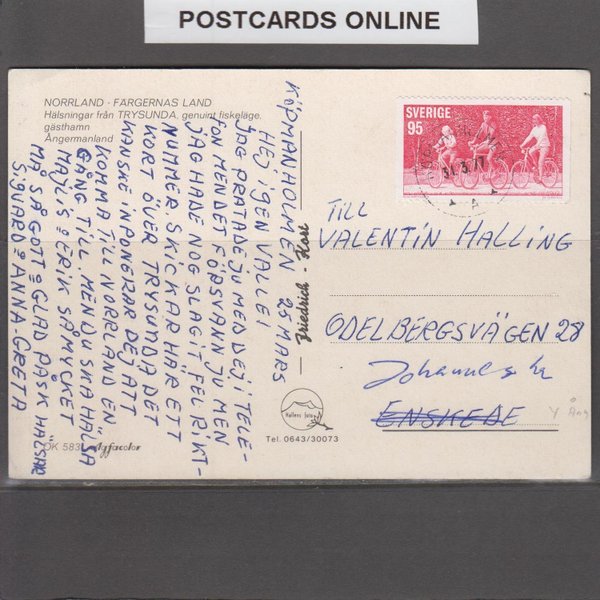 POSTCARDS ONLINE
NORRLAND - FÄRGERNAS LAND
Hälsningar från TRYSUNDA, genuint fiskeläge,
gästhamn
Ångermanland
KÖPMANHOLMEN 25 MARS
HEJ IGEN VALLE!
JAG PRATADE JU MED DEJ I TELE-
FON MEN DET FÖRSVANN JU MEN
JAG HADE NOG SLAGIT FEL RIKT-
NUMMER. SKICKAR HÄR ETT
KORT ÖVER TRYSUNDA DET
KANSKE INPONERAR DEJ ATT
KOMMA TILL NORRLAND EN
GÅNG TILL. MEN DU SKA HÄLSA
MAJLIS o ERIK SÅ MYCKET
MA SÅ GOTT o GLAD PÅSK HÄLSAR
SIGVARD o ANNA-GRETA
ÖK 583
Agfacolor
Friedrich - Kort
Hallens foto
Tel. 0643/30073
SVERIGE
95
31.3.77
A
TILL
VALENTIN HALLING
ODELBERGSVÄGEN 28
ENSKEDE